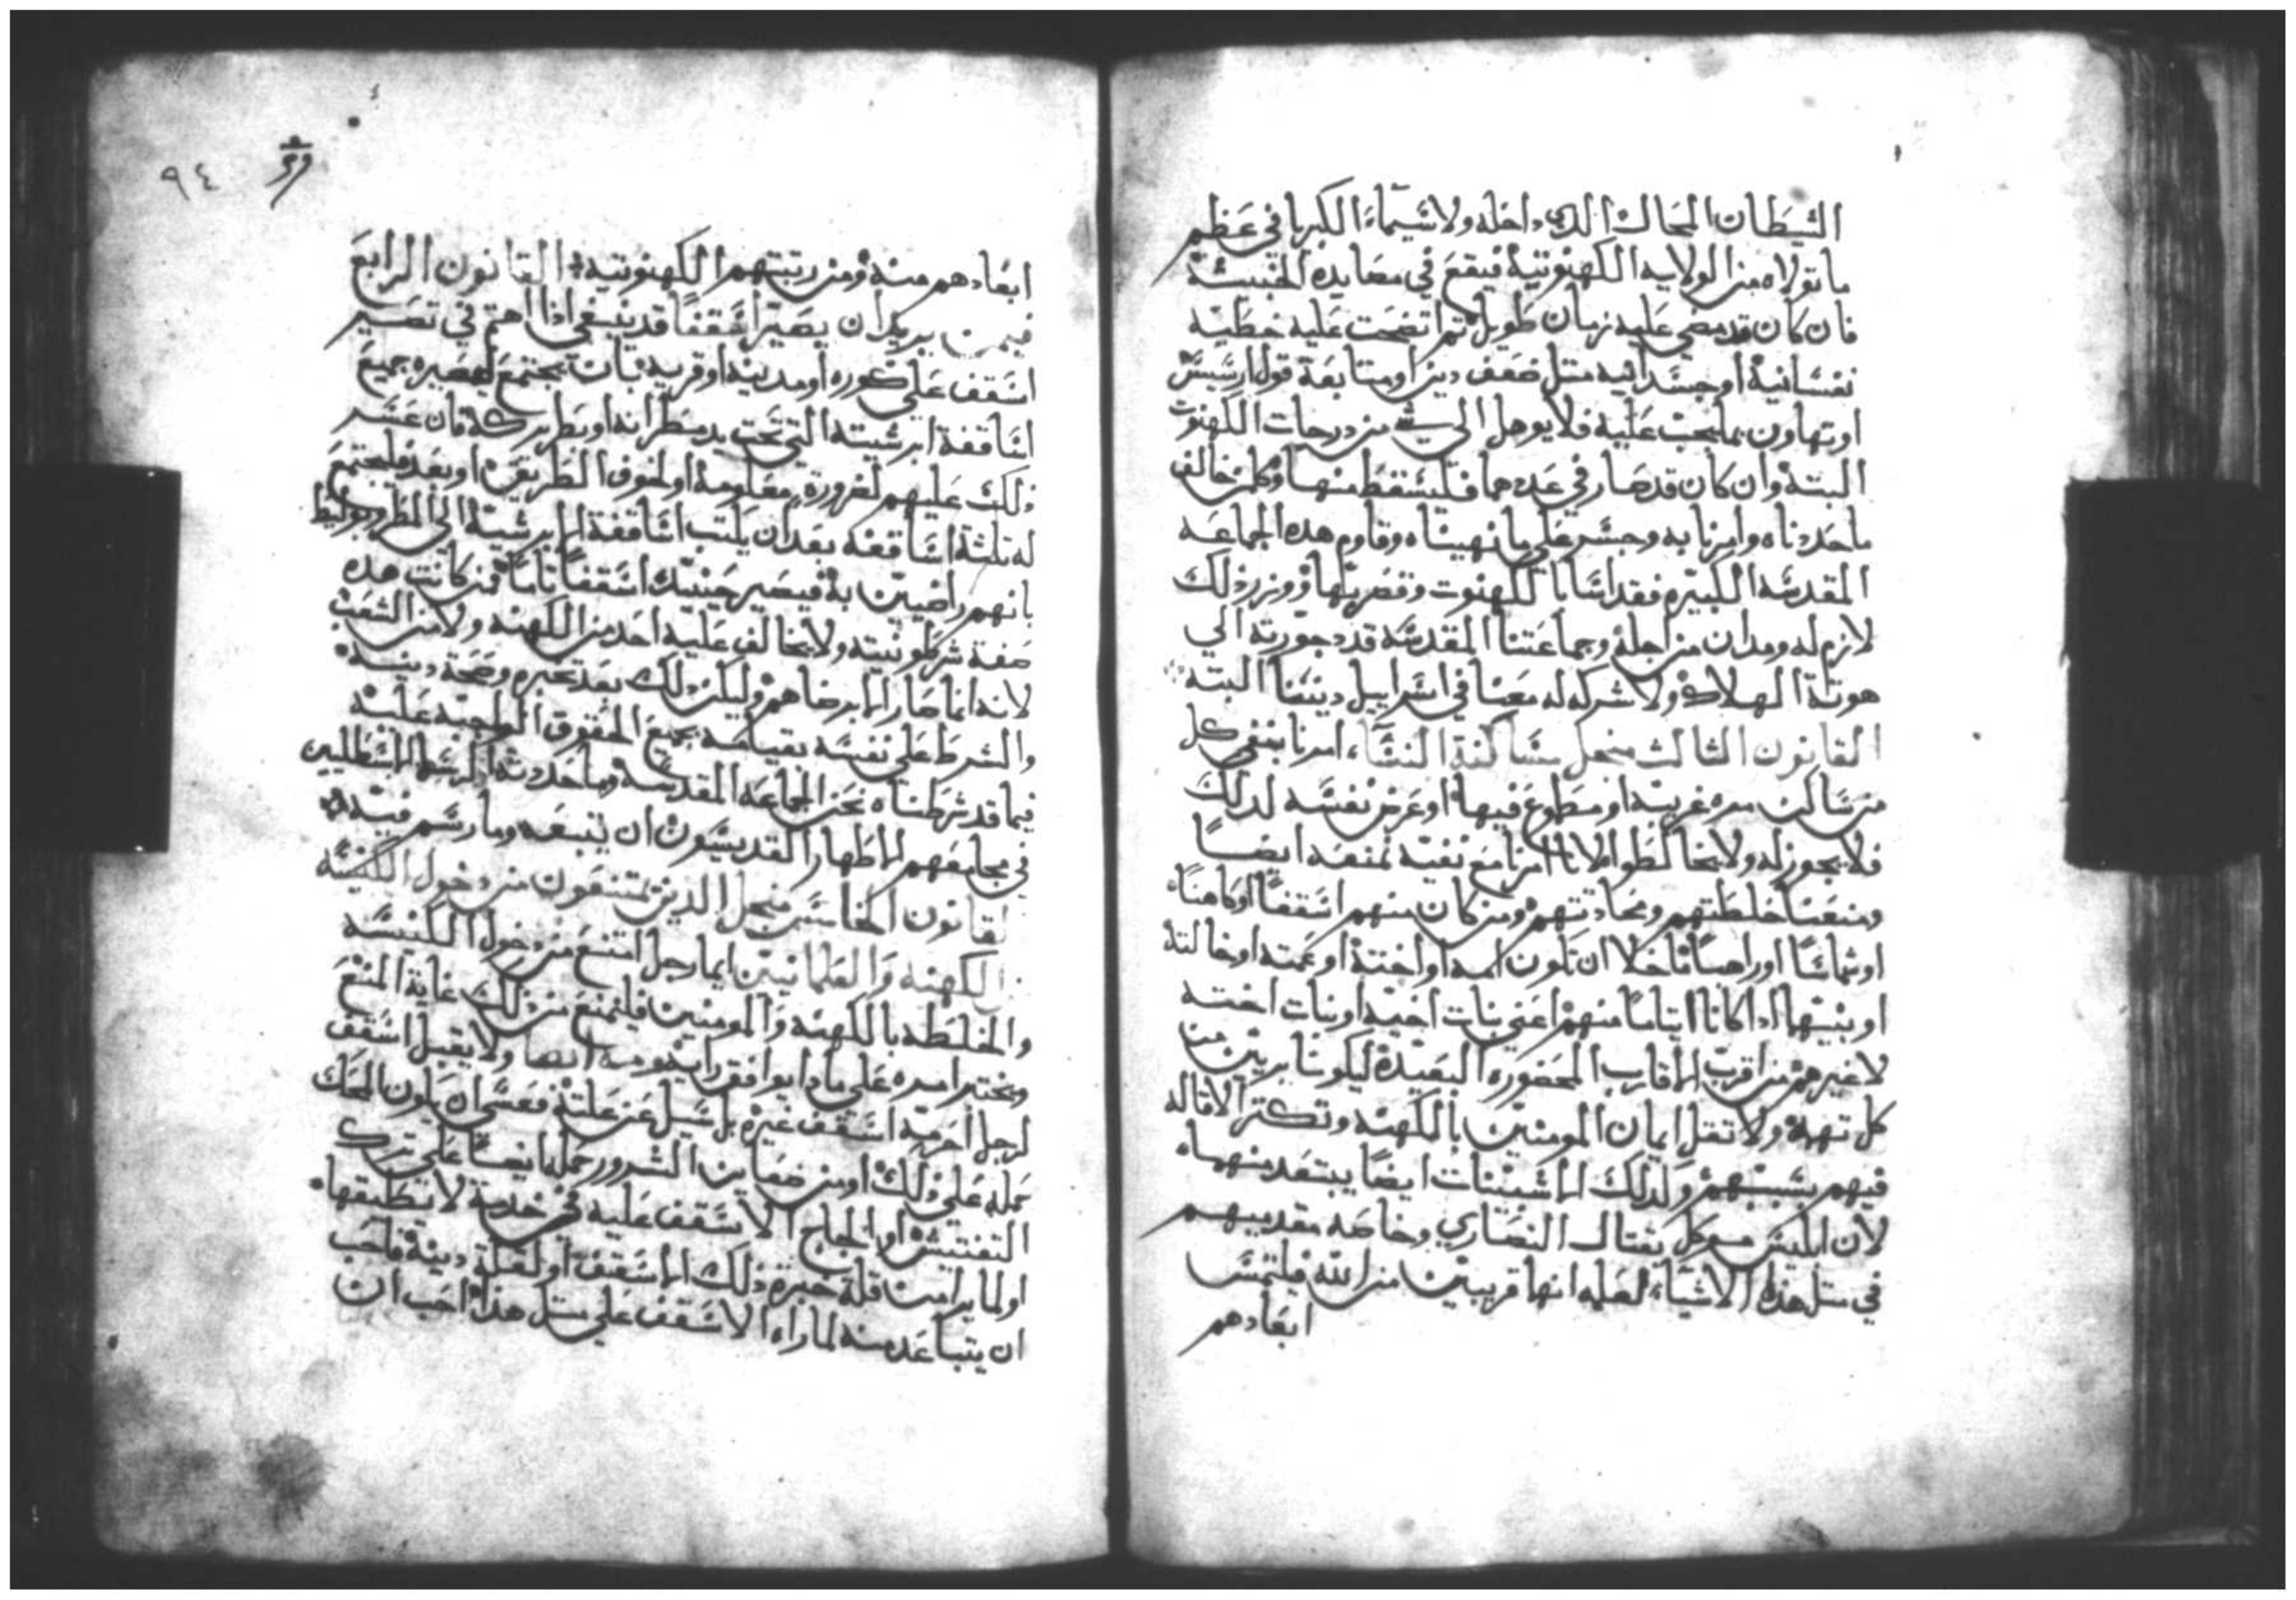 الشيطان المحال الدي داخله ولا سيما الكبريا في عظم
ما تولاه من الولايه الكهنوتية فيقع في مصايده الخبيثة
فان كان قد مضي عليه زمان طويل ثم اتضحت عليه خطيه
نفسانية او جسدانيه متل ضعف دين او متابعة قول اريسيس
او تهاون بما يجب عليه فلا يوهل الي شي من درجات الكهنوت
البتة وان كان قد صار في عددهما فليسقط منها وكلمن خالف
ما حددناه وامرنا به وجسر علي ما نهيناه وقاوم هده الجماعه
المقدسه الكبيره فقد اسا بالكهنوت وقصر بها ووزر ذلك
لازم له ومدان من اجله وجماعتنا المقدسه قد دحورته الي
هوتة الهلاك ولا شركه له معنا في اسراييل ديننا البتة
القانون الثالث من اجل مساكنة النساء امرنا بنفي كل
من ساكن مره غريبه او مطوع فيها او عرض نفسه لدلك
فلا يجوز له ولا يخالطوا لانا امرنا مع نفيه نمنعه ايضا
ومنعنا خلطتهم ومحادتهم ومن كان منهم اسقفا او كاهنا
او شماسا او راهبا ما خلا ان تكون امه او اخته او عمته او خالته
او بنيتهما ادا كانا ايتاما منهم اعني بنات اخيه او بنات اخته
لا غيرهم من اقرب الاقارب المحضوره البعيدة ليكونا بريين من
كل تهمة ولا تقل ايمان المومنين بالكهنه وتكثر الاقاله
فيهم بسببهم ولدلك الاشبينات ايضا يبتعد منهما
لان ابليس موكل بقتال النصاري وخاصه مقدميهم
في متل هذه الاشياء لعلمه انها قريبين من الله فيلتمس
ابعادهم
٩٤
ابعادهم منه ومن رتبتهم الكهنوتية القانون الرابع
فيمن يريد ان يصير اسقفا قد ينبغي اذا اهتم في تصير
اسقف علي كوره او مدينه او قريه بان يجتمع لمصيره جميع
اساقفة ابرشيته التي تحت يد مطرانه او بطريركه فان عسر
ذلك عليهم لضرورة معلومة او لخوف الطريق او بعد فليجتمع
له تلتة اساقفه بعد ان يكتب اساقفة الابرشية الي المطران خطوط
بانهم راضيين به فيصير حينيد اسقفا تاما فمن كانت هده
صفة شرطونيته ولا يخالف عليه احد من الكهنه ولا من الشعب
لانه انما صار الا برضاهم وليكن دلك بعد تخبره وصحة دينه
والشرط علي نفسه بقيامه بجميع الحقوق الواجبه عليه
فيما قد شرطناه نحن الجماعه المقدسه وما حددته الرسل السليحين
في مجامعهم الاطهار القديسون ان يتبعه وما رسم فيه
القانون الخامس من اجل الدين يمتنعون من دخول الكنيسه
من الكهنه والعلمانيين ايما رجل امتنع من دخول الكنيسه
والخلطه بالكهنه والمومنين فليمنع من ذلك غاية المنع
ويختبر امره علي مادا يوافق راي قومه ايضا ولا يقبل اسقف
لرجل احرمه اسقف غيره بل يسيل عن علته فعسي ان يكون المحك
حمله علي ذلك او من ضغاين الشرور حمله ايضا علي ترك
التفتيش او الجاح الاسقف عليه في خدمة لا تطيقها
او لما يرا من قلة خبرة ذلك الاسقف او لقلة دينه فاحب
ان يتباعد منه لما راه الاسقف علي متل هذا احب ان